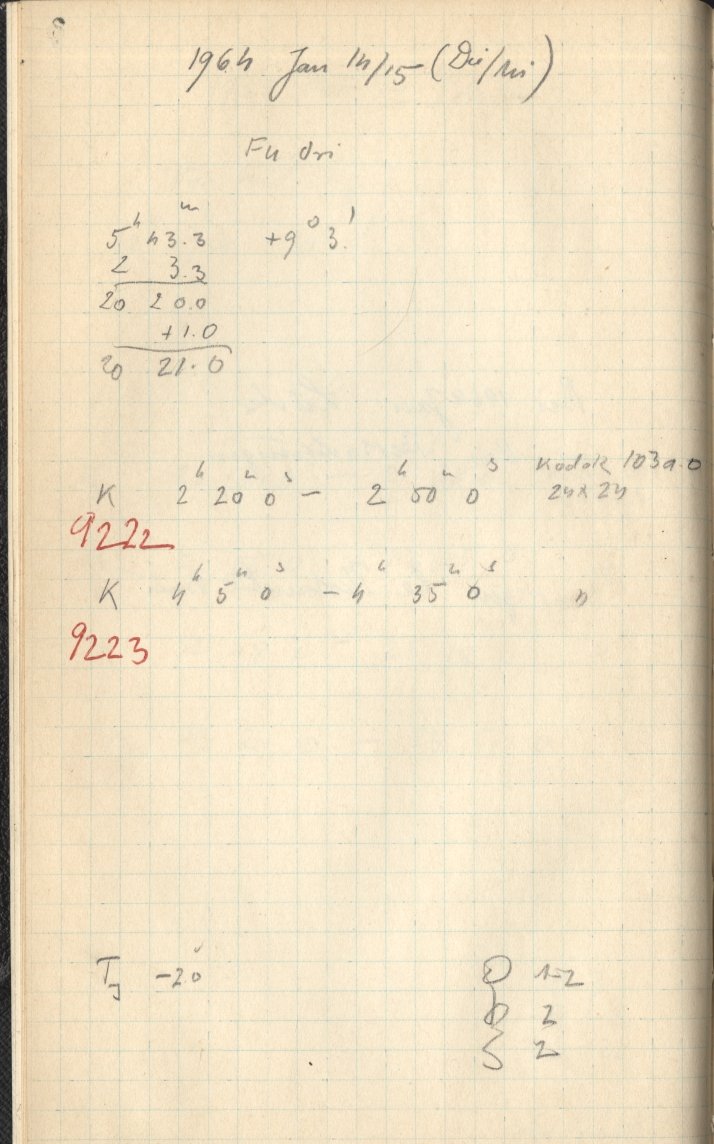 1964 Jan 14/15 (Die/Mi)
Fu Ori
5h 43.3m +9° 3.'
2 3.3
20 20.0
+1.0
20 21.0
K 2h 20m 0s – 2h 50m 0s Kodak 103a.O
24x24
9222
K 4h 5m 0s – 4h 35m 0s "
9223
-2°
1-2
2
2